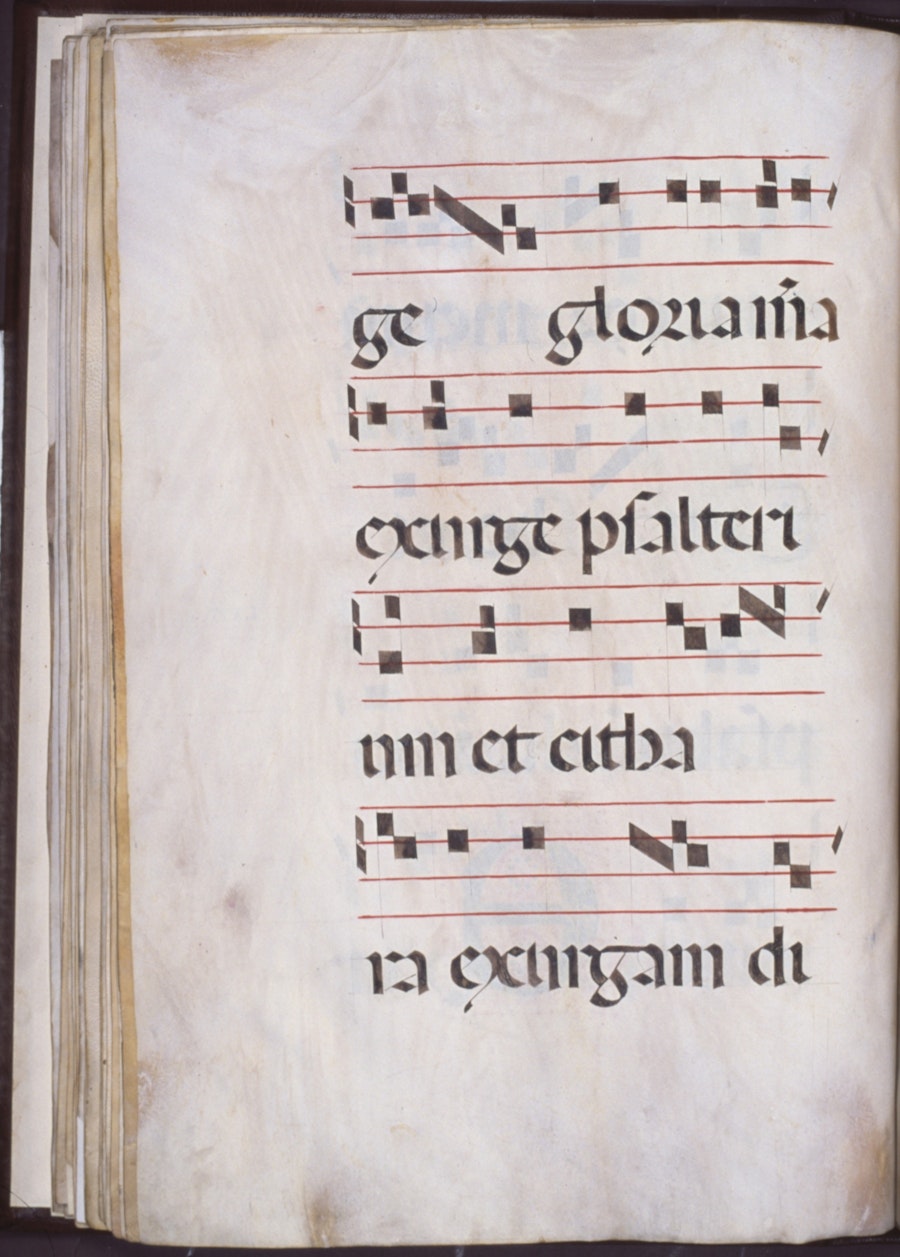 ge gloria m̃a
exurge psalteri
um et citha
ra exurgam di